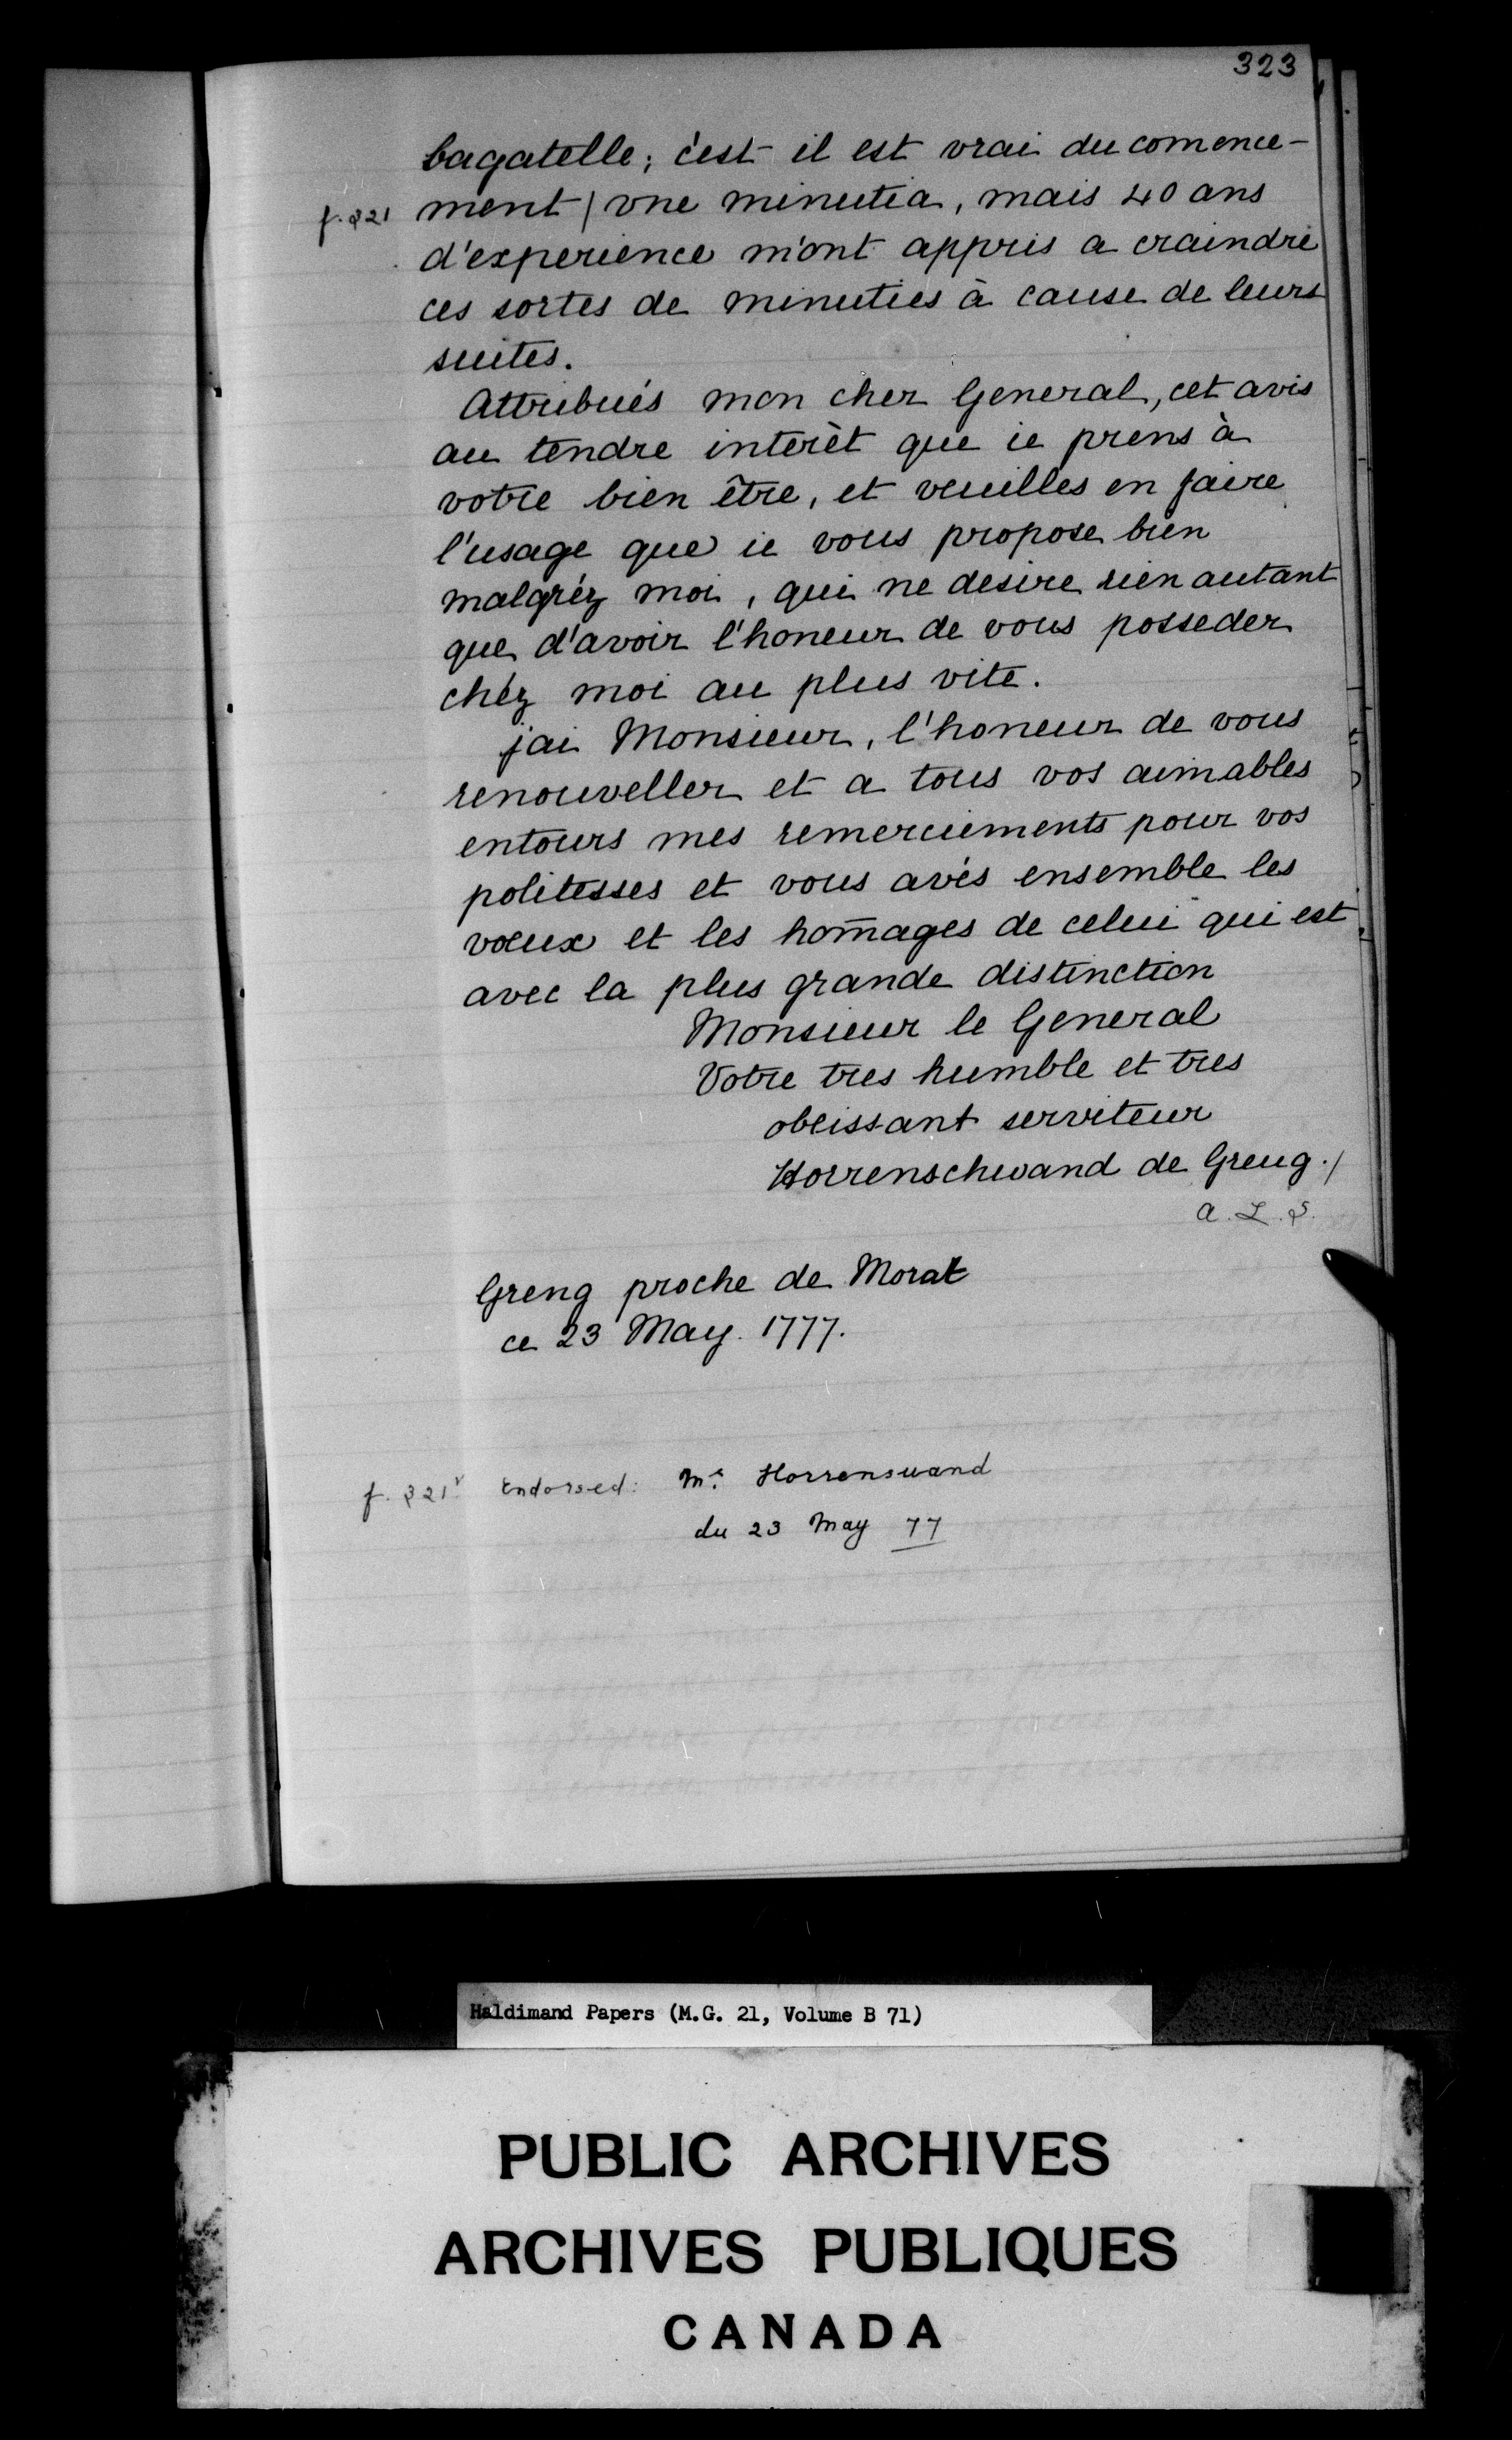 323
bagatelle; c'est il est vrai du comence-
f. 321 ment / vne minutia, mais 40 ans
d'experience m'ont appris a craindre
ces sortes de minuties à cause de leurs
suites.
Attribués mon cher General, cet avis
au tendre interèt que ie prens à
votre bien être, et veuilles en faire
l'usage que ie vous propose bien
malgréz moi, qui ne desire rien autant
que d'avoir l'honeur de vous posseder
chéz moi au plus vite.
j'ai Monsieur, l'honeur de vous
renouveller et a tous vos aimables
entours mes remerciements pour vos
politesses et vous avés ensemble les
vœux et les hom̄ages de celui qui est
avec la plus grande distinction
Monsieur le General
Votre tres humble et tres
obeissant serviteur
Horrenschwand de Greng ./
A. L. S.
Greng proche de Morat
ce 23 May. 1777.
f. 321v Endorsed: Mr. Horrenswand
du 23 May 77
Haldimand Papers (M.G. 21, Volume B 71)
PUBLIC ARCHIVES
ARCHIVES PUBLIQUES
CANADA